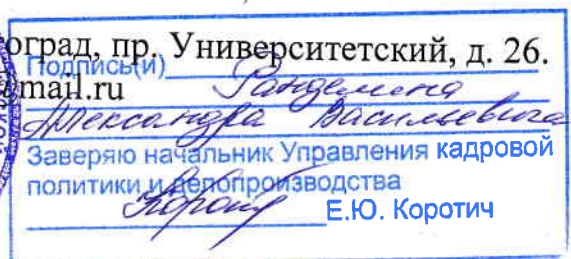 оград, пр. Университетский, д. 26.
Подпись(и)
@mail.ru
Александра Васильевича
Заверяю начальник Управления кадровой
политики и делопроизводства
Е.Ю. Коротич